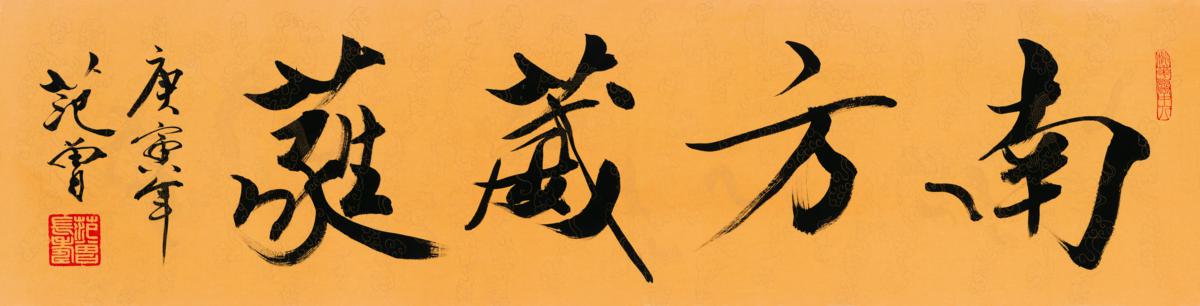 南方葳蕤
庚寅年
范曾
范曾長壽